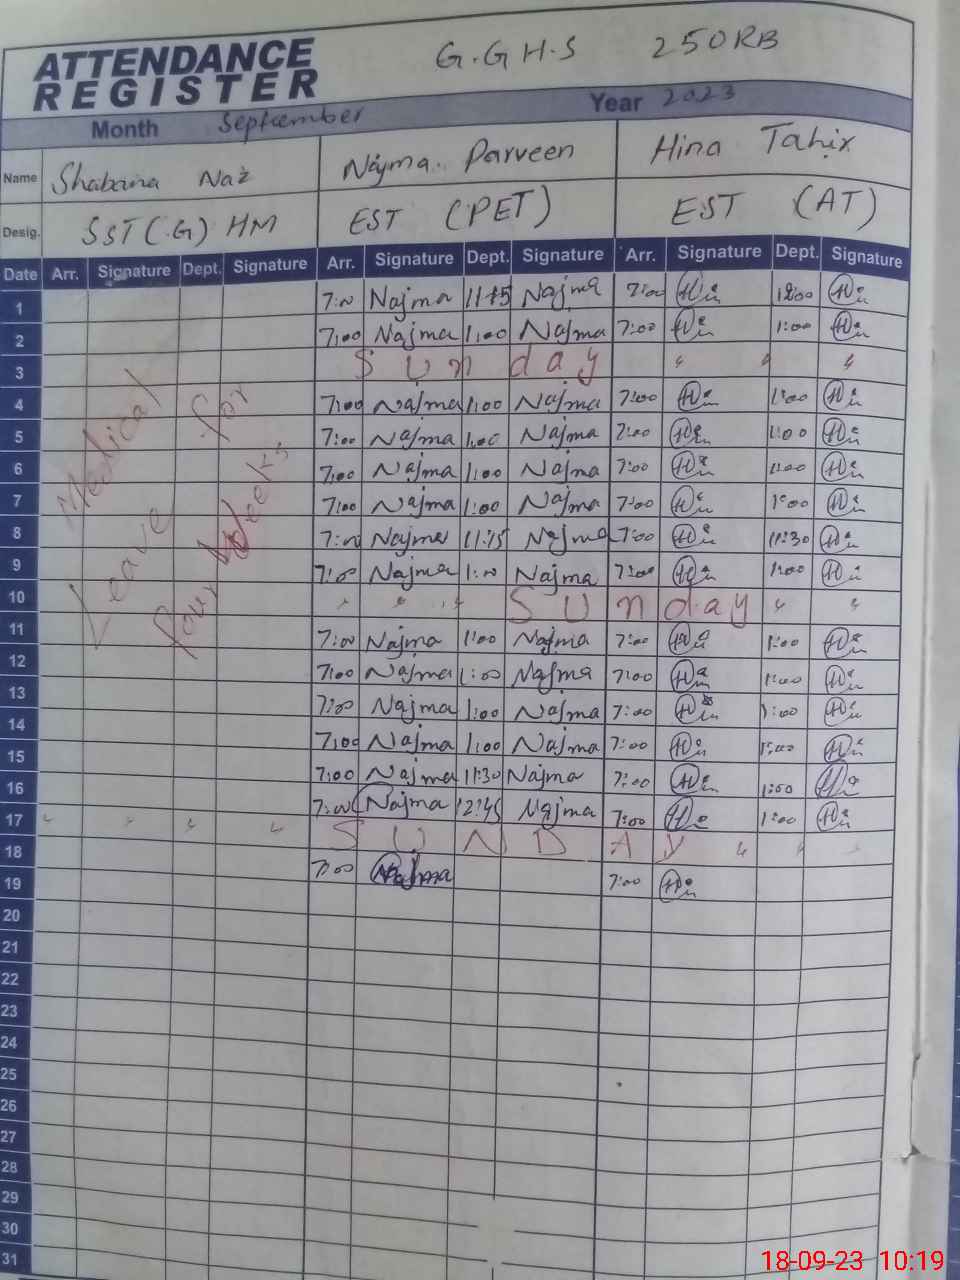 ATTENDANCE REGISTER G.GHS 250RB
Month September Year 2023
Name Shabana Naz Najma Parveen Hina Tahir
Desig. SST(G) HM EST (PET) EST (AT)
Date Arr. Signature Dept. Signature Arr. Signature Dept. Signature Arr. Signature Dept. Signature
1 7:00 Najma 11:15 Najma 7:00 12:00
2 7:00 Najma 1:00 Najma 7:00 1:00
3 Sunday " " "
4 7:00 Najma 1:00 Najma 7:00 1:00
5 7:00 Najma 1:00 Najma 7:00 1:00
6 7:00 Najma 1:00 Najma 7:00 1:00
7 7:00 Najma 1:00 Najma 7:00 1:00
8 7:00 Najma 11:15 Najma 7:00 11:30
9 7:00 Najma 1:00 Najma 7:00 1:00
Medical
Leave for
four Weeks
10 " " " Sunday " "
11 7:00 Najma 1:00 Najma 7:00 1:00
12 7:00 Najma 1:00 Najma 7:00 1:00
13 7:00 Najma 1:00 Najma 7:00 1:00
14 7:00 Najma 1:00 Najma 7:00 1:00
15 7:00 Najma 11:30 Najma 7:00 1:00
16 7:00 Najma 12:45 Najma 7:00 1:00
17 " " " " SUNDAY " " "
18 7:00 Najma 7:00
19
20
21
22
23
24
25
26
27
28
29
30
31
18-09-23 10:19